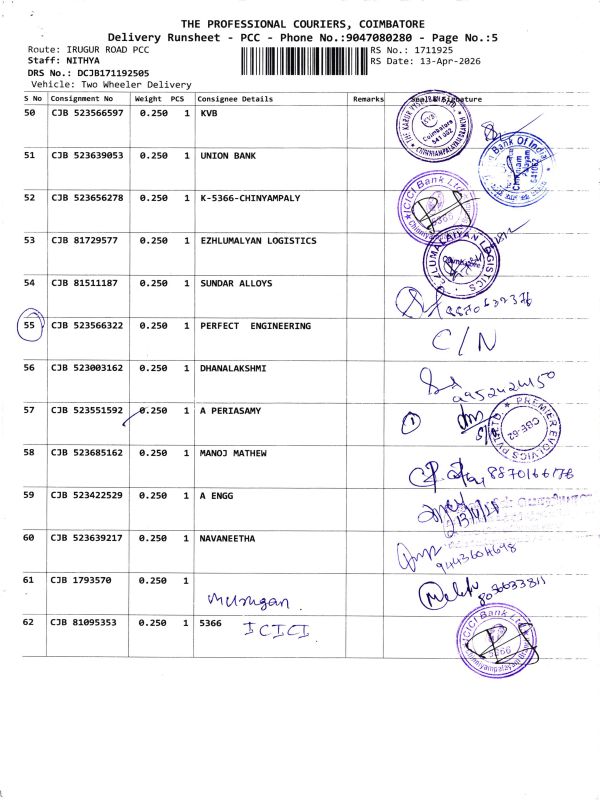 THE PROFESSIONAL COURIERS, COIMBATORE
Delivery Runsheet - PCC - Phone No.:9047080280 - Page No.:5
Route: IRUGUR ROAD PCC RS No.: 1711925
Staff: NITHYA RS Date: 13-Apr-2026
DRS No.: DCJB171192505
Vehicle: Two Wheeler Delivery
S No Consignment No Weight PCS Consignee Details Remarks Seal & Signature
50 CJB 523566597 0.250 1 KVB
51 CJB 523639053 0.250 1 UNION BANK
Bank Of India
52 CJB 523656278 0.250 1 K-5366-CHINYAMPALY
ICICI Bank Ltd
5366
53 CJB 81729577 0.250 1 EZHLUMALYAN LOGISTICS
54 CJB 81511187 0.250 1 SUNDAR ALLOYS
55 CJB 523566322 0.250 1 PERFECT ENGINEERING C/N
56 CJB 523003162 0.250 1 DHANALAKSHMI
57 CJB 523551592 0.250 1 A PERIASAMY 1
PREMIER EVOLVICS PVT LTD
CBE-62
58 CJB 523685162 0.250 1 MANOJ MATHEW
59 CJB 523422529 0.250 1 A ENGG
60 CJB 523639217 0.250 1 NAVANEETHA
9443604698
61 CJB 1793570 0.250 1 Murugan
8036633811
62 CJB 81095353 0.250 1 5366 ICICI
ICICI Bank Ltd
5366